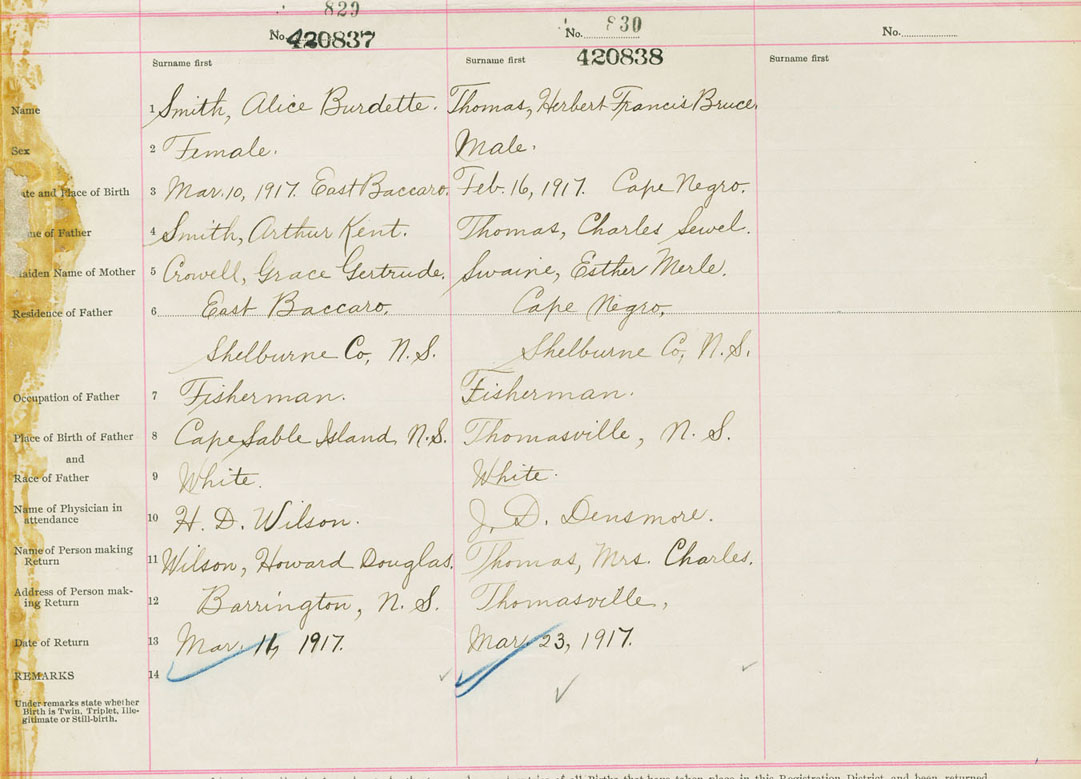 829
830
No. 420837
No.
420838
No.
Surname first
Surname first
Surname first
Name
1 Smith, Alice Burdette.
Thomas, Herbert Francis Bruce.
Sex
2 Female.
Male.
ate and Place of Birth
3 Mar. 10, 1917. East Baccaro.
Feb. 16, 1917. Cape Negro.
me of Father
4 Smith, Arthur Kent.
Thomas, Charles Sewel.
aiden Name of Mother
5 Crowell, Grace Gertrude.
Swaine, Esther Merle.
Residence of Father
6 East Baccaro,
Cape Negro,
Shelburne Co, N.S.
Shelburne Co, N.S.
Occupation of Father
7 Fisherman.
Fisherman.
Place of Birth of Father
8 Cape Sable Island, N.S.
Thomasville, N.S.
and
Race of Father
9 White.
White.
Name of Physician in
attendance
10 H. D. Wilson.
J. D. Densmore.
Name of Person making
Return
11 Wilson, Howard Douglas.
Thomas, Mrs. Charles.
Address of Person mak-
ing Return
12 Barrington, N.S.
Thomasville,
Date of Return
13 Mar. 11, 1917.
Mar. 23, 1917.
REMARKS
14
Under remarks state whether
Birth is Twin, Triplet, Ille-
gitimate or Still-birth.
of all Births that have taken place in this Registration District and been returned